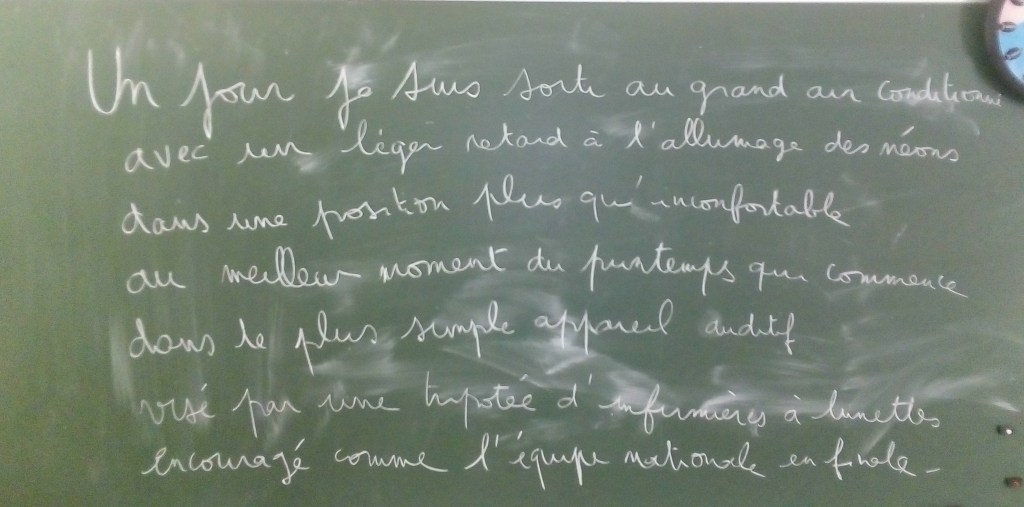 Un jour je suis sorti au grand air conditionné
avec un léger retard à l'allumage des néons
dans une position plus qu'inconfortable
au meilleur moment du printemps qui commence
dans le plus simple appareil auditif
visé par une tripotée d'infirmières à lunettes
encouragé comme l'équipe nationale en finale.